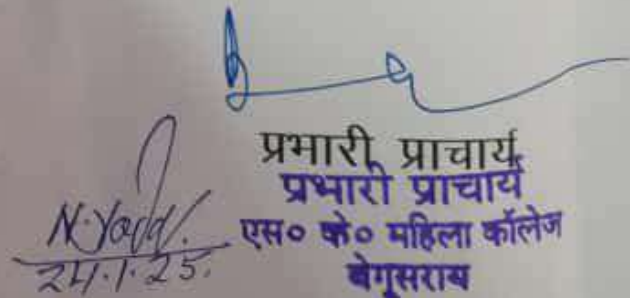 प्रभारी प्राचार्य
प्रभारी प्राचार्य
एस० के० महिला कॉलेज
बेगुसराय
N. Yadav
24.1.25.